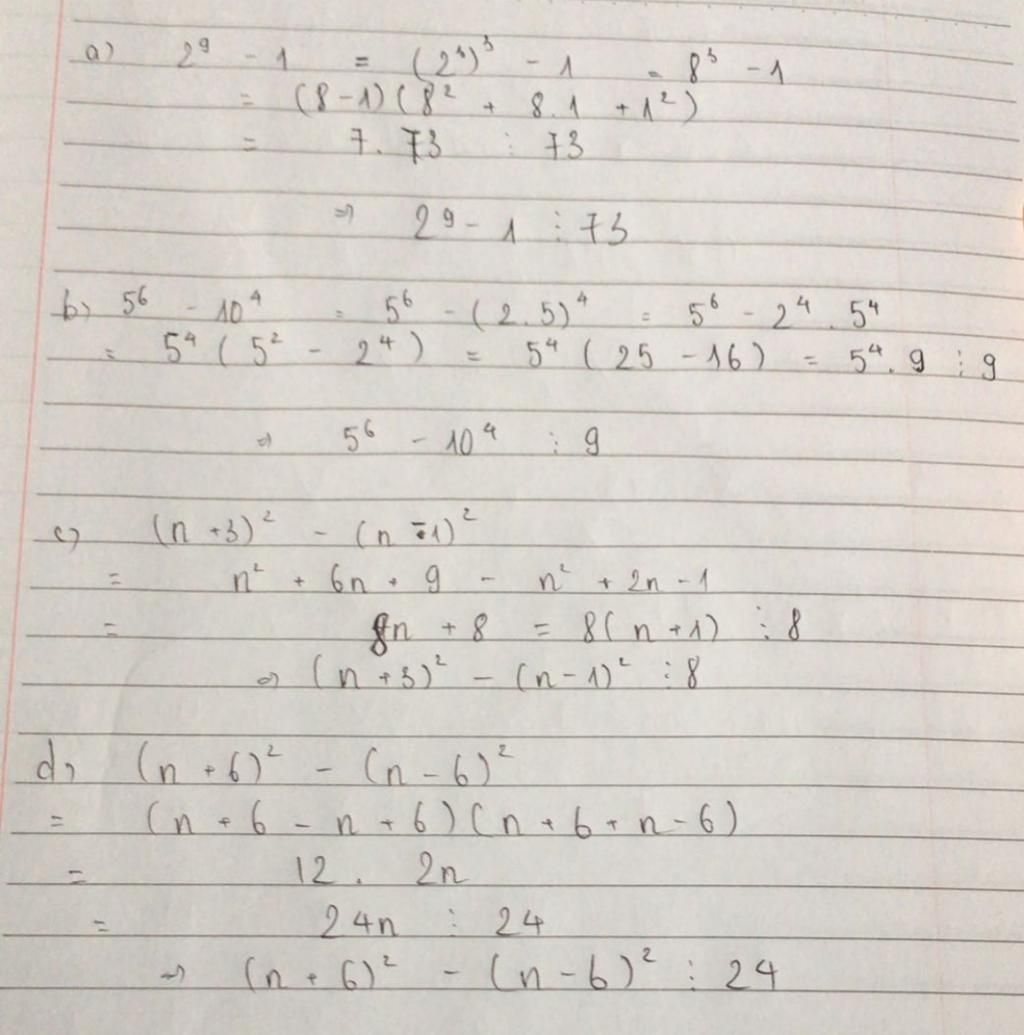 a) 2⁹ - 1 = (2³)³ - 1 = 8³ - 1
= (8-1)(8² + 8.1 + 1²)
= 7. 73 ⋮ 73
⇒ 2⁹ - 1 ⋮ 73
b) 5⁶ - 10⁴ = 5⁶ - (2.5)⁴ = 5⁶ - 2⁴. 5⁴
= 5⁴ (5² - 2⁴) = 5⁴ (25 - 16) = 5⁴. 9 ⋮ 9
⇒ 5⁶ - 10⁴ ⋮ 9
c) (n +3)² - (n -1)²
= n² + 6n + 9 - n² + 2n - 1
= 8n + 8 = 8(n+1) ⋮ 8
⇒ (n+3)² - (n-1)² ⋮ 8
d) (n + 6)² - (n - 6)²
= (n + 6 - n + 6)(n + 6 + n - 6)
= 12 . 2n
= 24n ⋮ 24
⇒ (n + 6)² - (n - 6)² ⋮ 24